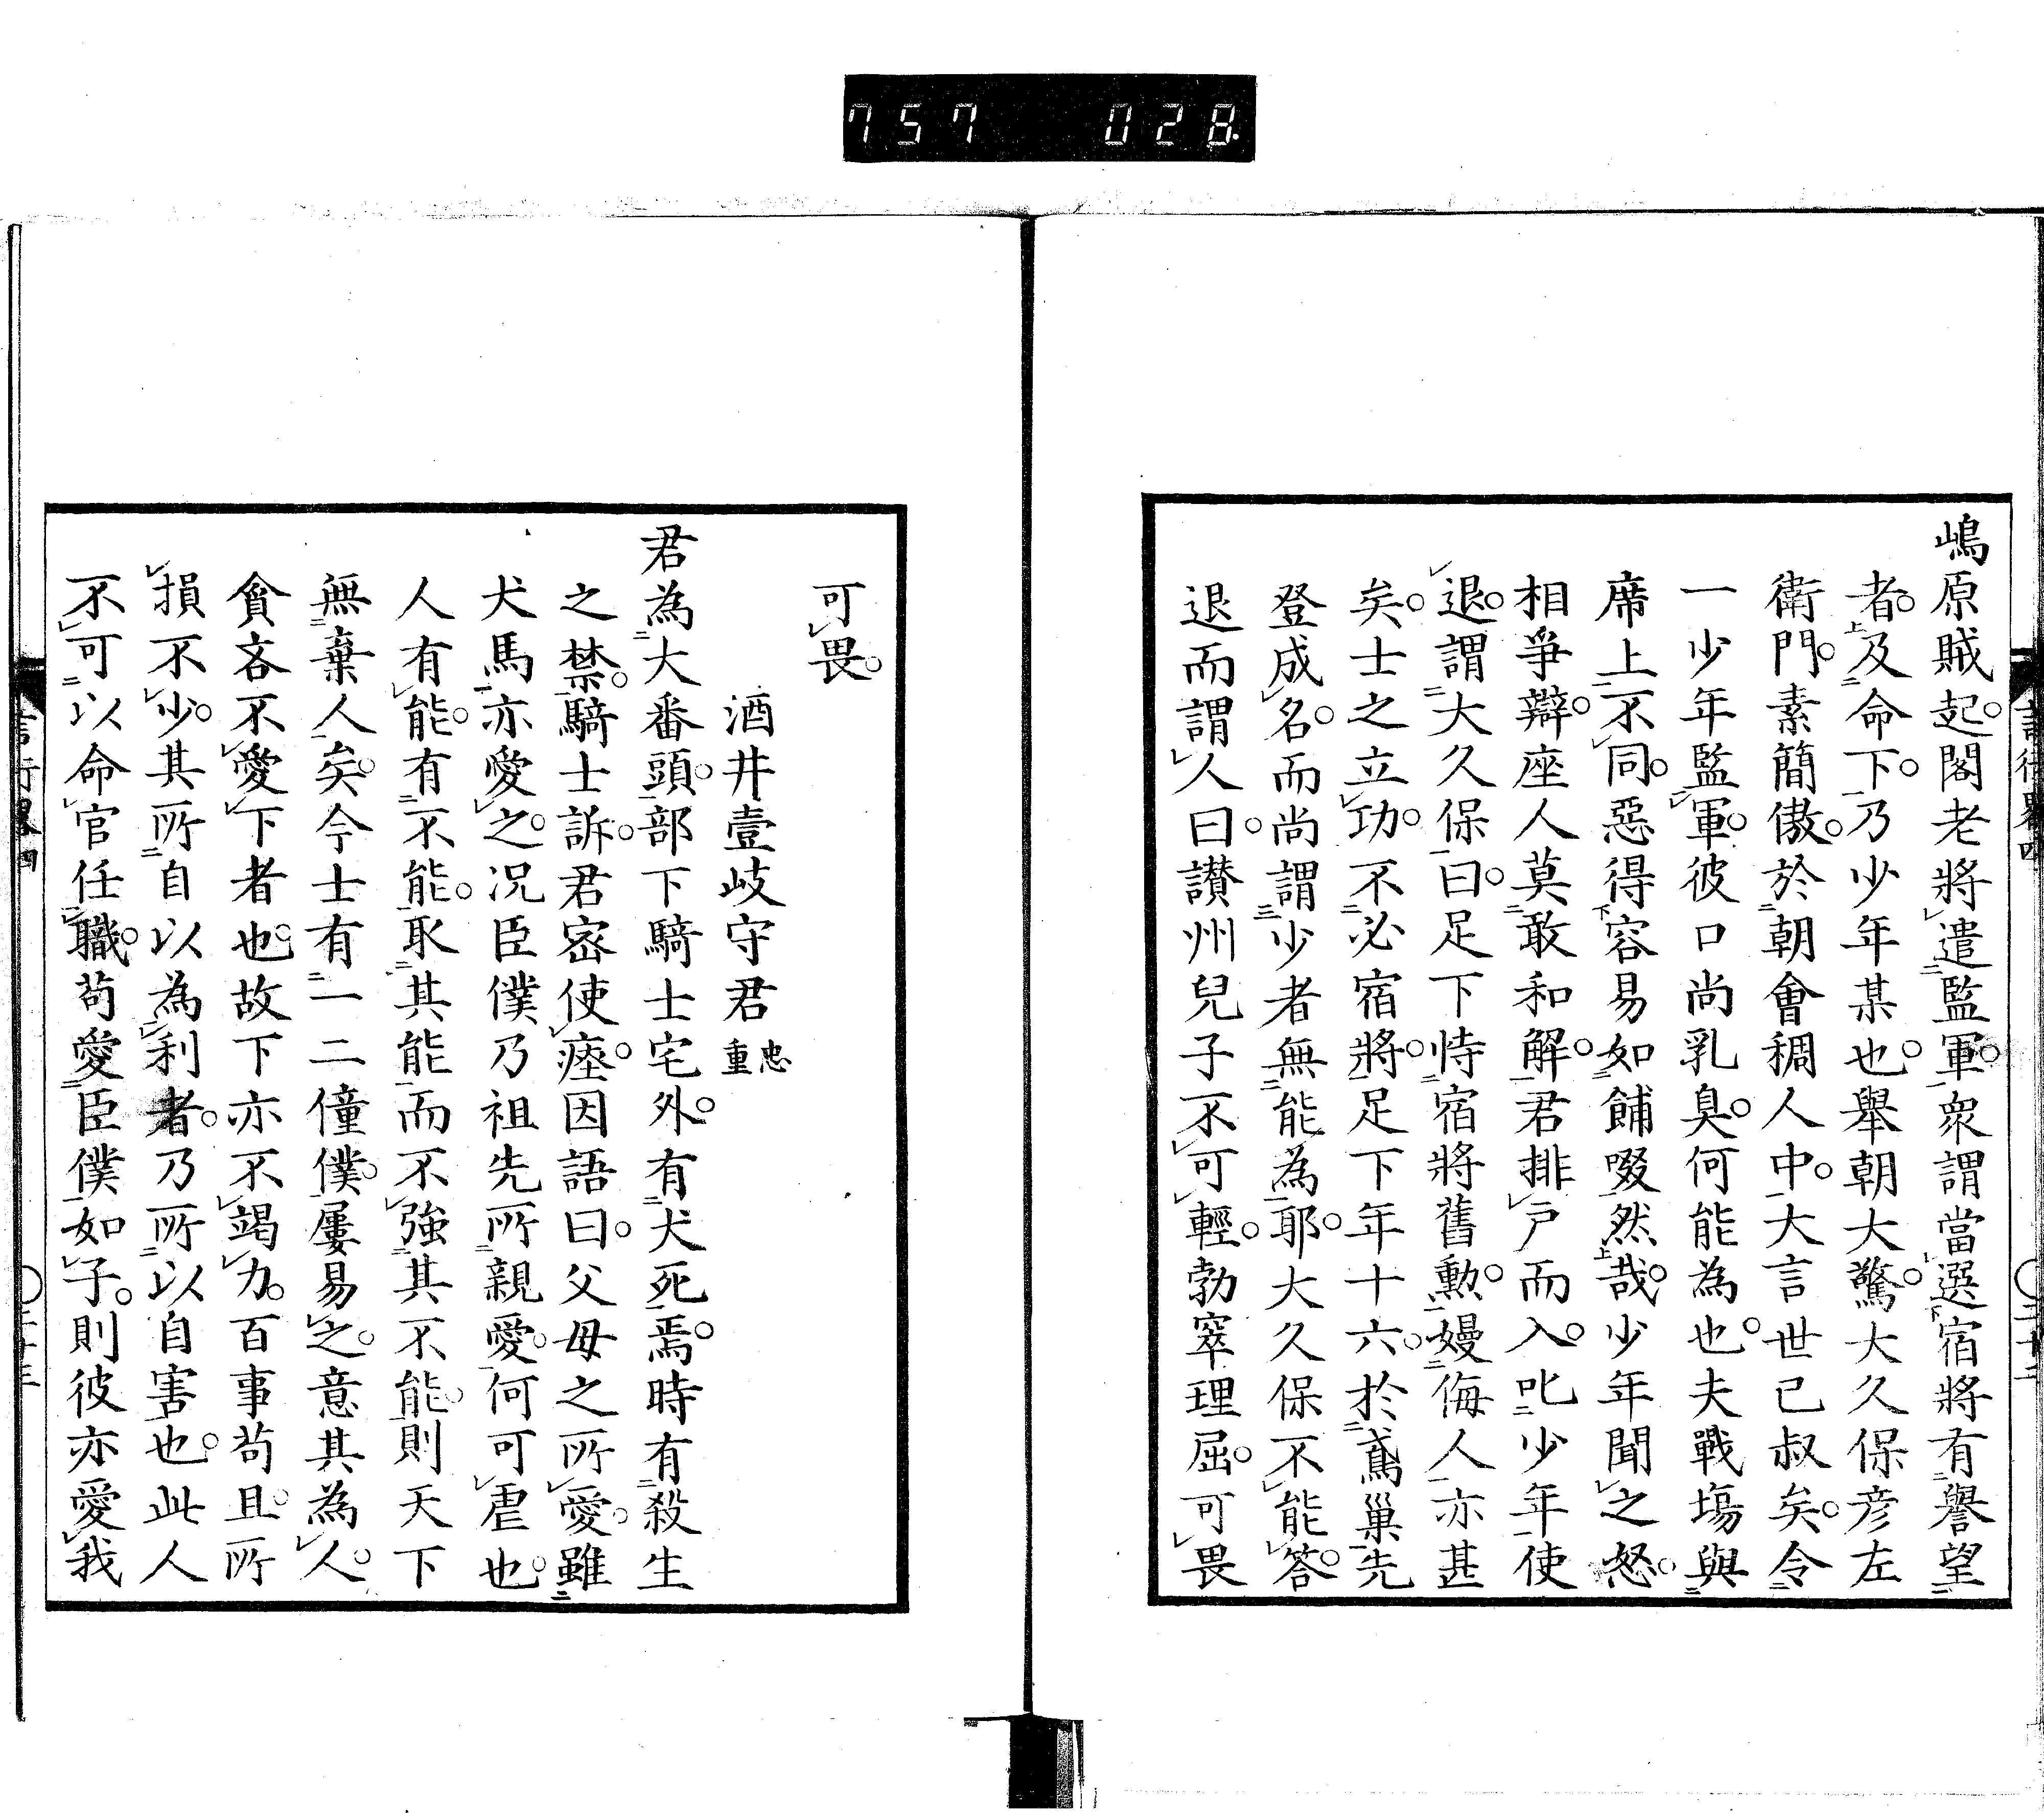 757 028
嶋原賊起。閣老將遣監軍。衆謂當選宿將有譽望
者。及命下。乃少年某也。舉朝大驚。大久保彦左
衛門。素簡傲。於朝會稠人中。大言世已叔矣。令
一少年監軍。彼口尚乳臭。何能為也。夫戰場與
席上不同。惡得容易如餔啜然哉。少年聞之怒。
相爭辯。座人莫敢和解。君排戸而入。叱少年使
退。謂大久保曰。足下恃宿將舊勲。嫚侮人亦甚
矣。士之立功。不必宿將。足下年十六。於鳶巢先
登成名。而尚謂少者無能為耶。大久保不能答。
退而謂人曰。讃州兒子不可輕。勃窣理屈。可畏
可畏。
酒井壹岐守君忠重
君為大番頭。部下騎士宅外。有犬死焉。時有殺生
之禁。騎士訴。君密使瘞。因語曰。父母之所愛。雖
犬馬亦愛之。况臣僕乃祖先所親愛。何可虐也。
人有能。有不能。取其能而不強其不能。則天下
無棄人矣。今士有一二僮僕。屢易之。意其為人。
貪吝不愛下者也。故下亦不竭力。百事苟且。所
損不少。其所自以為利者。乃所以自害也。此人
不可以命官任職。苟愛臣僕如子。則彼亦愛我
言行畧四